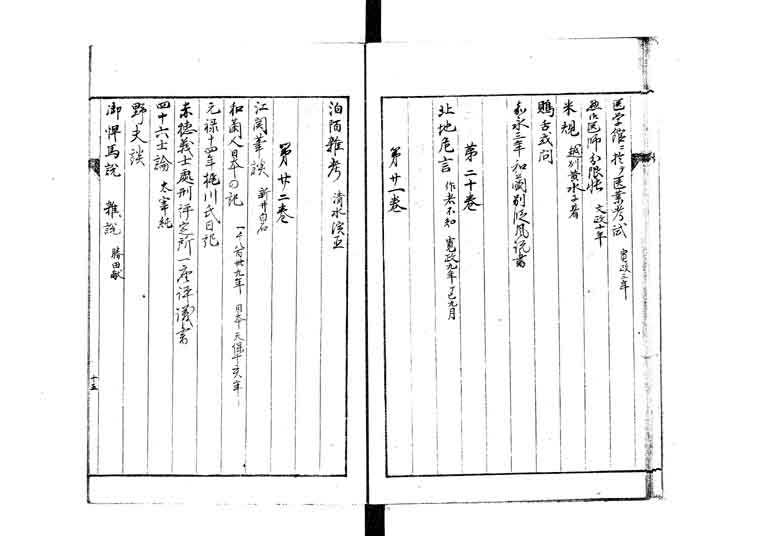 医学館ニ於ケル医業考試 寛政三年
医師分限帳 文政十年
米規 越列黄水子著
鴃舌或問
嘉永三年和蘭別段風説書
第二十巻
北地危言 作者不知 寛政九年丁巳九月
第廿一巻
泊洦雑考 清水濱臣
第廿二巻
江関筆談 新井白石
和蘭人日本の記 一千八百廿九年 日本天保十亥年
元禄十四年梶川氏日記
赤穂義士處刑評定所一座評議書
四十六士論 太宰純
野夫談
御悍馬説 雑説 勝田献
十五